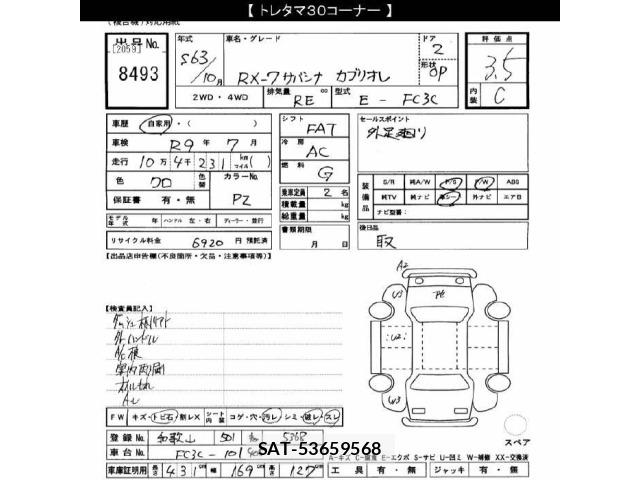 【 トレタマ30コーナー 】
(複合機)対応用紙
出品 No.
[2059]
8493
年式
S63/10月
車名・グレード
RX-7 サバンナ カブリオレ
ドア
2
形状
OP
評価点
3.5
内装
C
2WD・4WD
排気量
RE
cc
型式
E - FC3C
車歴
自家用・( )
車検
R9年 7月
走行
10万4千231 km マイル( )
色
クロ
色替
カラーNo.
PZ
保証書
有・無
モデル年式
年
ハンドル 左・右
ディーラー・並行
リサイクル料金
6920 円 預託済
シフト
FAT
冷房
AC
燃料
G
乗車定員
2 名
積載量
kg
総重量
kg
書類期限
月 日
セールスポイント
装備品
S/R
純A/W
P/S
P/W
ABS
純TV
純ナビ
革シート
外ナビ
エアB
ナビ型番:
後日品
取
【出品店申告欄(不良箇所・欠品・注意事項等)】
【検査員記入】
外ハンドル
A2
U3
U2
W3
FW
キズ・トビ石・割レX
シート内装
コゲ・穴・汚レ・シミ・破レ・スレ
登録 No.
和歌山 501
5368
車台 No.
FC3C - 101
SAT-53659568
車庫証明用
長さ 431 cm
幅 169 cm
高さ 127 cm
工具 有・無
ジャッキ 有・無
スペア
A-キズ
E-エクボ S-サビ U-凹ミ W-補修 XX-交換済